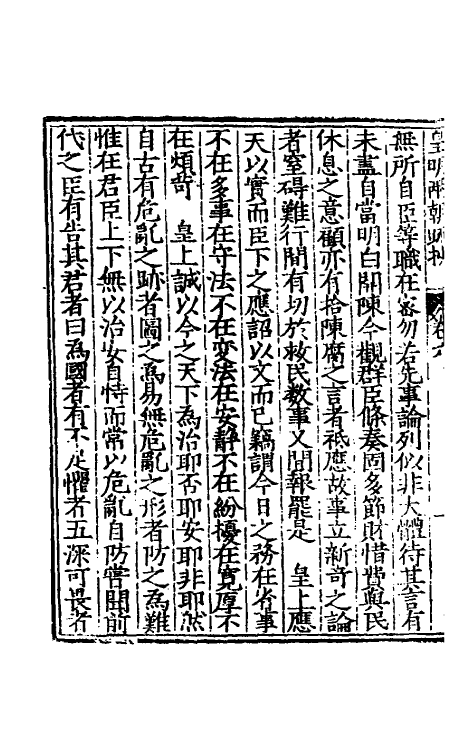 皇明兩朝疏抄 卷六
無所自臣等職在審勿若先事論列似非大體待其言有
未盡自當明白開陳今觀群臣條奏固多節財惜費與民
休息之意顧亦有拾陳腐之言者祗應故事立新奇之論
者窒碍難行間有切於救民敎事又間報罷是 皇上應
天以實而臣下之應詔以文而已竊謂今日之務在省事
不在多事在守法不在変法在安靜不在紛擾在寬厚不
在煩苛 皇上誠以今之天下為治耶否耶安耶非耶然
自古有危亂之跡者圖之為易無危亂之形者防之為難
惟在君臣上下無以治安自恃而常以危亂自防嘗聞前
代之臣有告其君者曰為國者有不足懼者五深可畏者